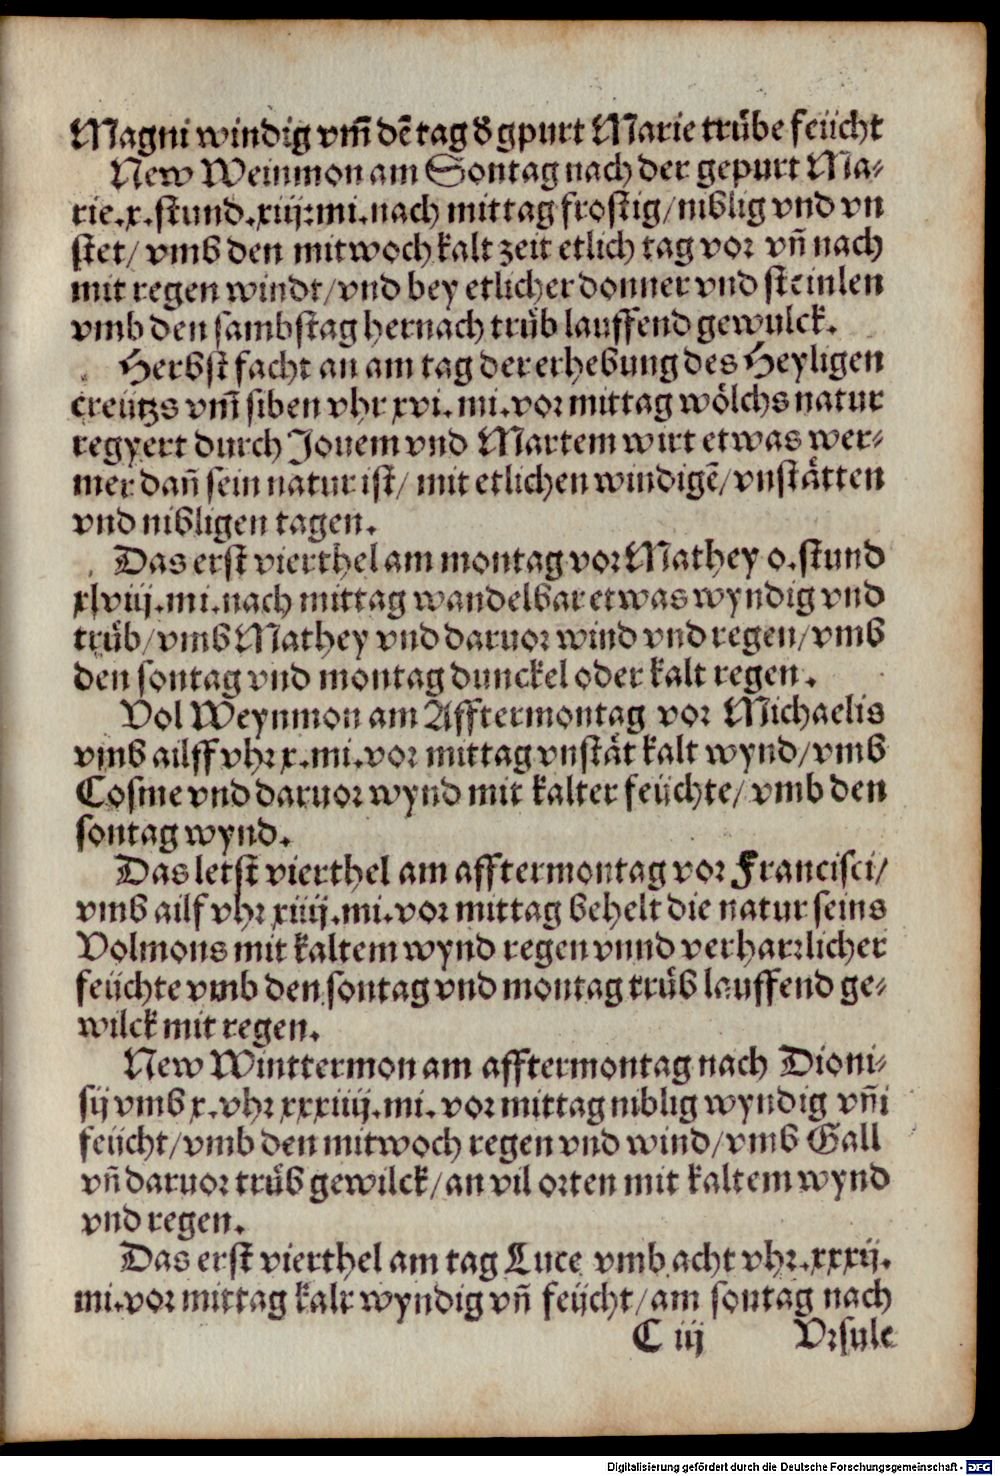 Magni windig vm̄ dē tag d' gpurt Marie trübe feücht
New Weinmon am Sontag nach der gepurt Ma-
rie.x.stund.xiij:mi.nach mittag frostig/niblig vnd vn
stet/ vmb den mitwoch kalt zeit etlich tag vor vn̄ nach
mit regen windt/vnd bey etlicher donner vnd steinlen
vmb den sambstag hernach trüb lauffend gewulck.
Herbst facht an am tag der erhebung des Heyligen
creützs vm̄ siben vhr xvi. mi.vor mittag wölchs natur
regyert durch Jouem vnd Martem wirt etwas wer-
mer dan̄ sein natur ist/ mit etlichen windigē/ vnstätten
vnd nibligen tagen.
Das erst vierthel am montag vor Mathey o.stund
xlviij.mi.nach mittag wandelbar etwas wyndig vnd
trüb/vmb Mathey vnd daruor wind vnd regen/vmb
den sontag vnd montag dunckel oder kalt regen.
Vol Weynmon am Afftermontag vor Michaelis
vmb ailff vhr x.mi.vor mittag vnstät kalt wynd/vmb
Cosme vnd daruor wynd mit kalter feüchte/ vmb den
sontag wynd.
Das letst vierthel am afftermontag vor Francisci/
vmb ailf vhr xiiij.mi.vor mittag behelt die natur seins
Volmons mit kaltem wynd regen vnnd verharrlicher
feüchte vmb den sontag vnd montag trüb lauffend ge-
wilck mit regen.
New Winttermon am afftermontag nach Dioni-
sij vmb x.vhr xxxiiij.mi.vor mittag niblig wyndig vn̄i
feücht/vmb den mitwoch regen vnd wind/vmb Gall
vn̄ daruor trüb gewilck/an vil orten mit kaltem wynd
vnd regen.
Das erst vierthel am tag Luce vmb acht vhr.xxxij.
mi.vor mittag kalt wyndig vn̄ feücht/am sontag nach
C iij Vrsule
Digitalisierung gefördert durch die Deutsche Forschungsgemeinschaft - DFG